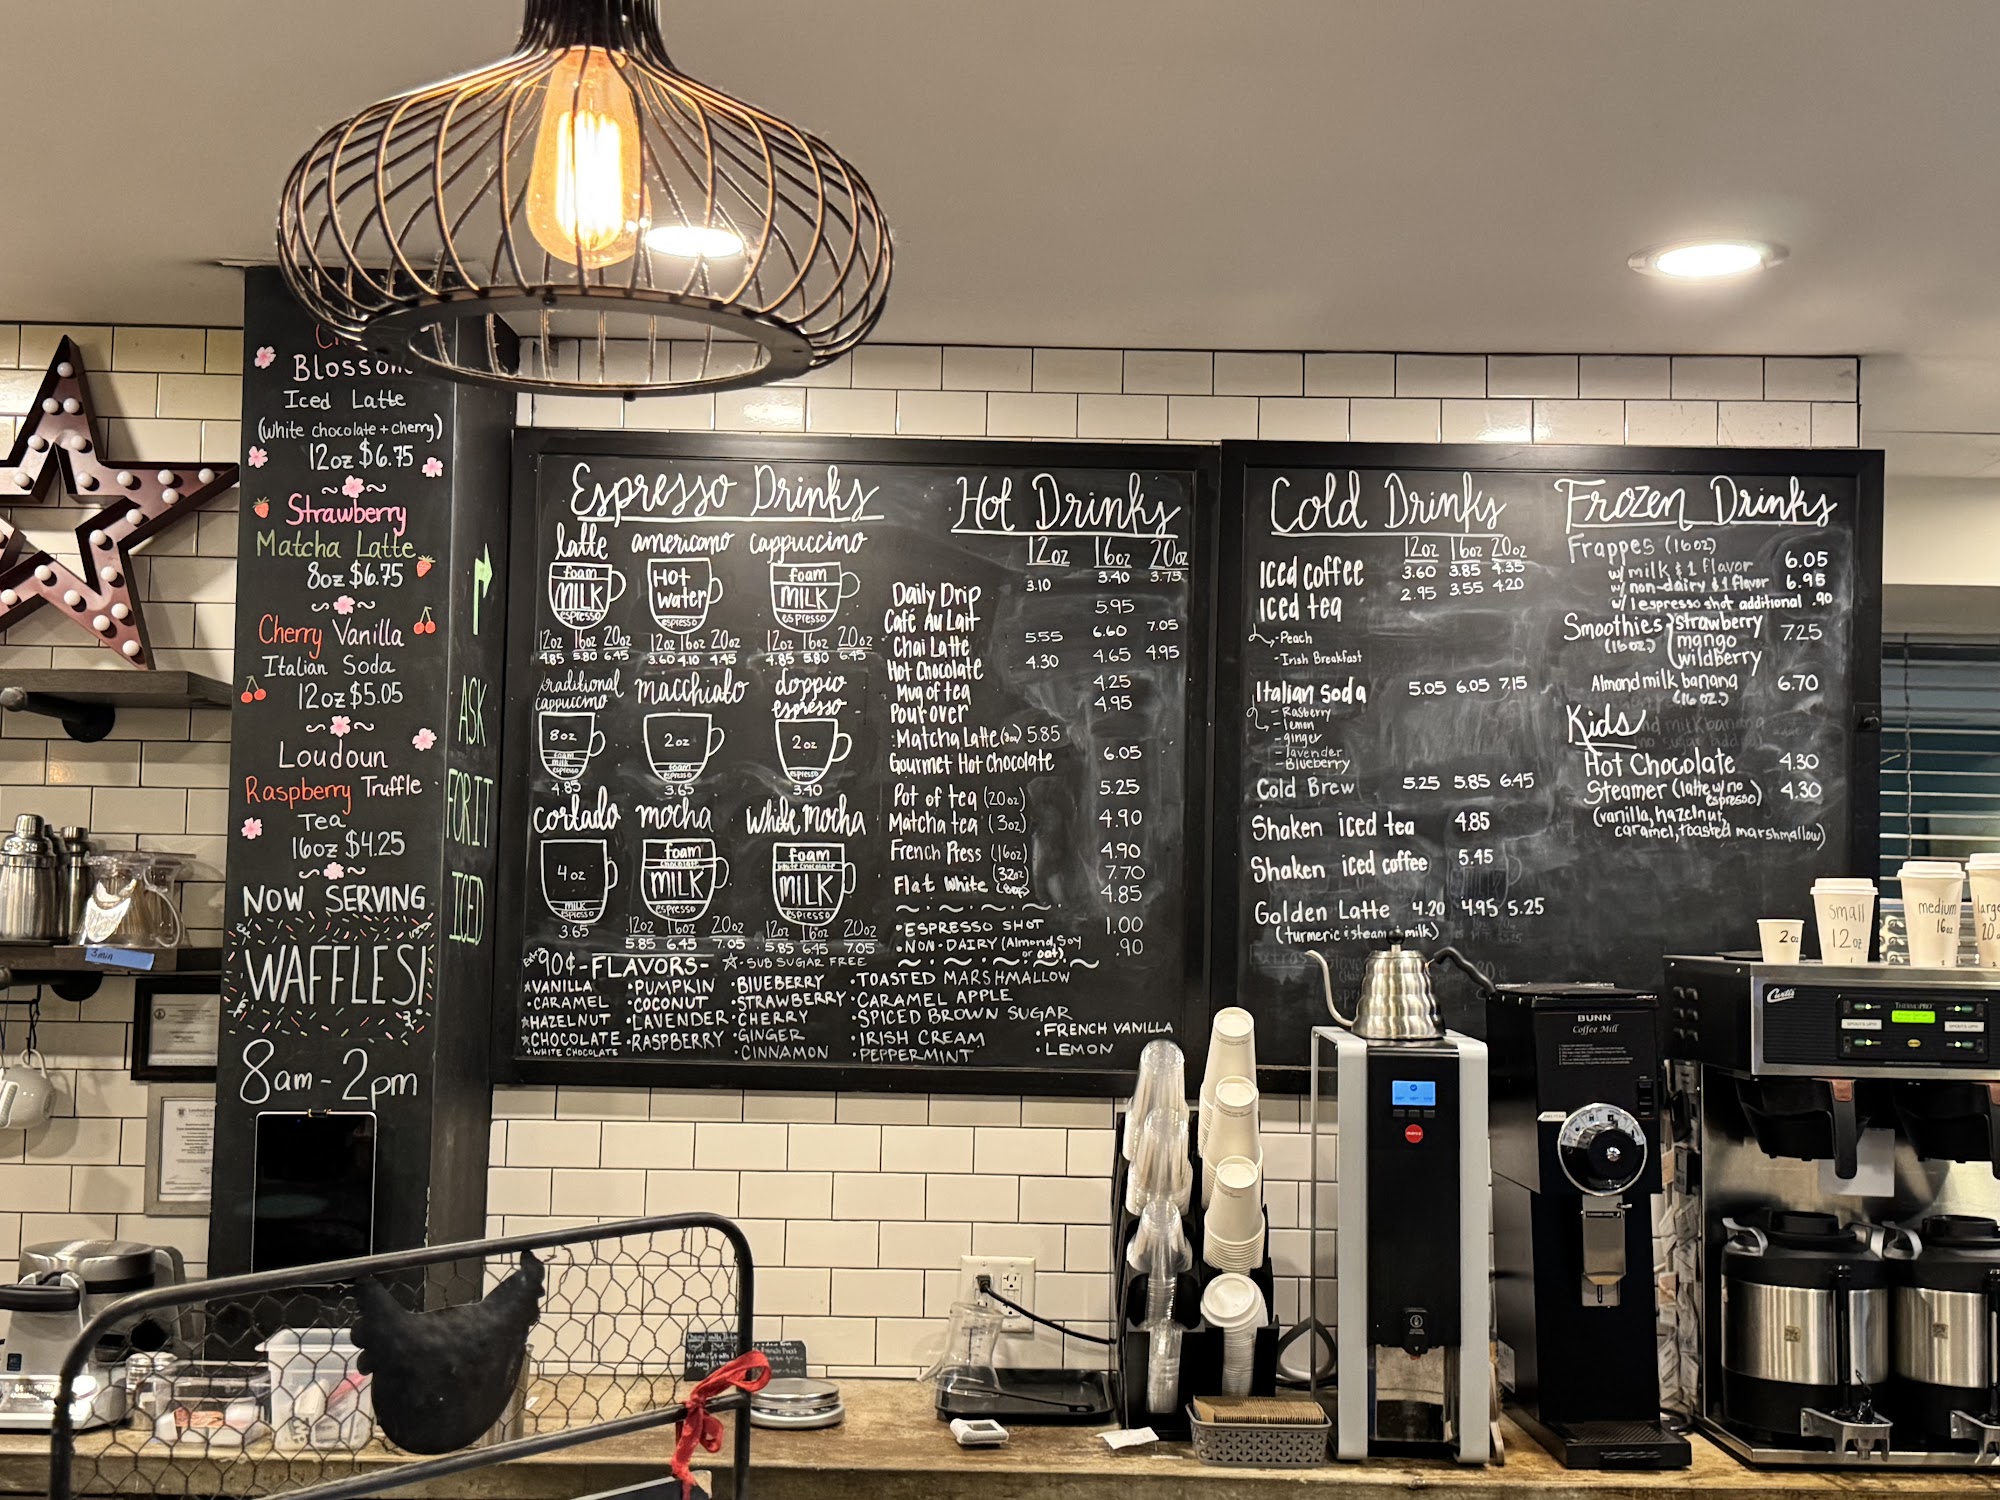 Blossom
Iced Latte
(white chocolate + cherry)
12oz $6.75
Strawberry
Matcha Latte
8oz $6.75
Cherry Vanilla
Italian Soda
12oz $5.05
Loudoun
Raspberry Truffle
Tea
16oz $4.25
NOW SERVING
WAFFLES!
8am - 2pm
ASK
FOR IT
ICED
Espresso Drinks
latte americano cappuccino
foam MILK espresso
Hot water espresso
foam MILK espresso
12oz 16oz 20oz
4.85 5.80 6.45
12oz 16oz 20oz
3.60 4.10 4.45
12oz 16oz 20oz
4.85 5.80 6.45
traditional cappuccino macchiato doppio espresso
8oz foam milk espresso
2oz foam espresso
2oz espresso
4.85 3.65 3.40
cortado mocha white mocha
4oz MILK espresso
foam chocolate MILK espresso
foam white chocolate MILK espresso
3.65
12oz 16oz 20oz
5.85 6.45 7.05
12oz 16oz 20oz
5.85 6.45 7.05
90¢ -FLAVORS- ☆-SUB SUGAR FREE
☆VANILLA •PUMPKIN •BLUEBERRY •TOASTED MARSHMALLOW
•CARAMEL •COCONUT •STRAWBERRY •CARAMEL APPLE
☆HAZELNUT •LAVENDER •CHERRY •SPICED BROWN SUGAR
☆CHOCOLATE •RASPBERRY •GINGER •IRISH CREAM •FRENCH VANILLA
+WHITE CHOCOLATE •CINNAMON •PEPPERMINT •LEMON
Hot Drinks
12oz 16oz 20oz
Daily Drip 3.10 3.40 3.75
Café Au Lait 5.95
Chai Latte 5.55 6.60 7.05
Hot Chocolate 4.30 4.65 4.95
Mug of tea 4.25
Pour over 4.95
Matcha Latte (8oz) 5.85
Gourmet Hot Chocolate 6.05
Pot of tea (20oz) 5.25
Matcha tea (3oz) 4.90
French Press (16oz) 4.90
(32oz) 7.70
Flat White 4.85
•ESPRESSO SHOT 1.00
•NON-DAIRY (Almond, Soy or oat) .90
Cold Drinks
12oz 16oz 20oz
Iced coffee 3.60 3.85 4.35
Iced tea 2.95 3.55 4.20
-Peach
-Irish Breakfast
Italian soda 5.05 6.05 7.15
-Rasberry
-lemon
-ginger
-lavender
-Blueberry
Cold Brew 5.25 5.85 6.45
Shaken iced tea 4.85
Shaken iced coffee 5.45
Golden Latte 4.20 4.95 5.25
(turmeric + steamed milk)
Frozen Drinks
Frappes (16oz)
w/ milk & 1 flavor 6.05
w/ non-dairy & 1 flavor 6.95
w/ 1 espresso shot additional .90
Smoothies (16oz.) strawberry mango wildberry 7.25
Almond milk banana (16oz.) 6.70
Kids
Hot Chocolate 4.30
Steamer (latte w/ no espresso) 4.30
(vanilla, hazelnut,
caramel, toasted marshmallow)
2oz
small
12oz
medium
16oz
large
20
Curtis
THERMOPRO
BUNN
Coffee Mill
3min